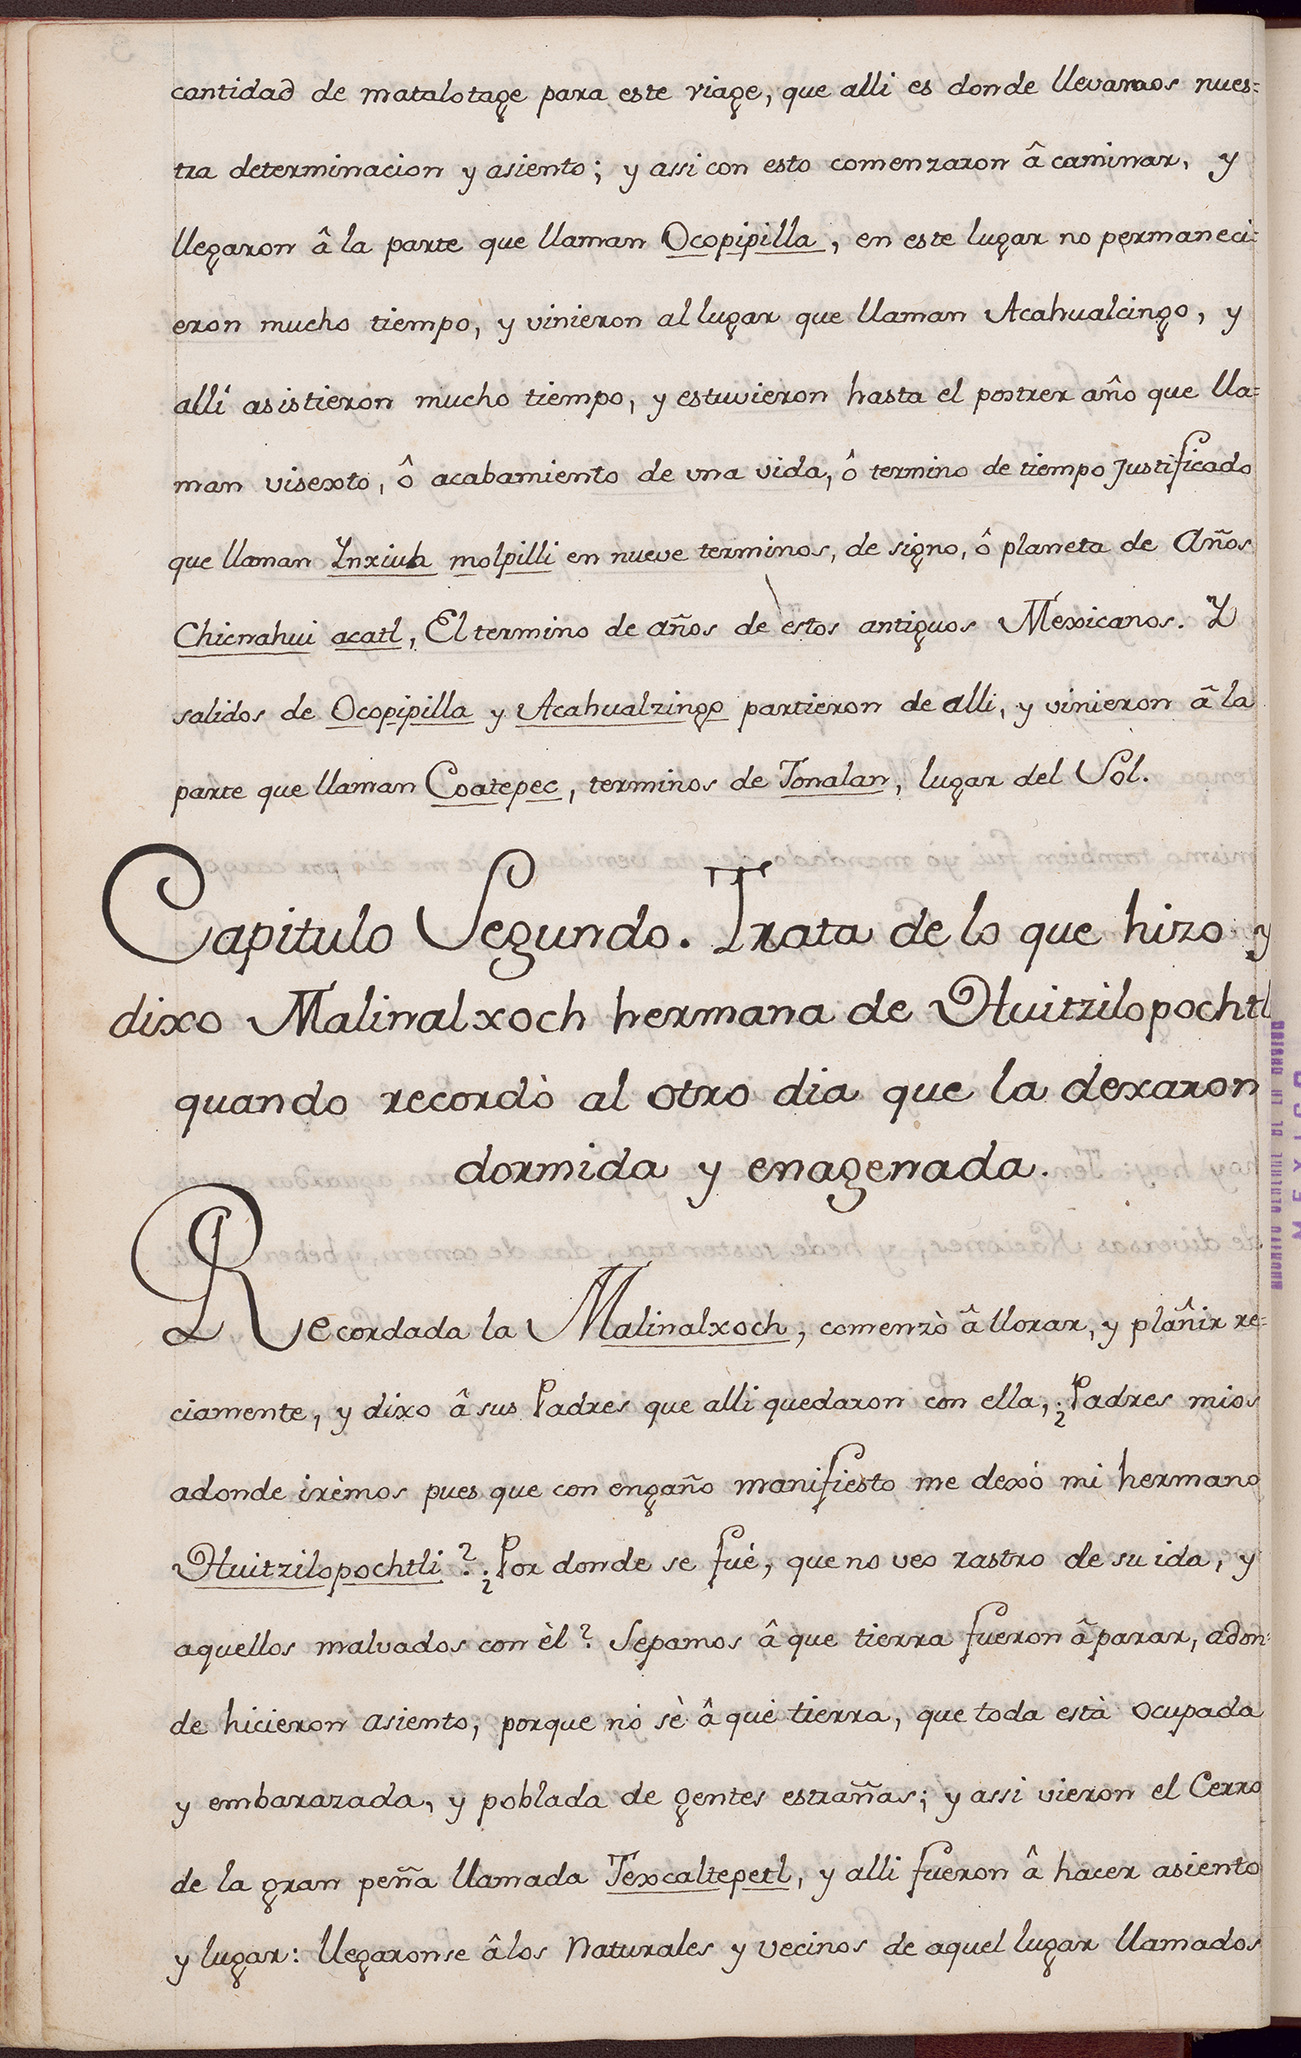 cantidad de matalotage para este viage, que alli es donde llevamos nues=
tra determinacion y asiento; y assi con esto comenzaron â caminar, y
llegaron â la parte que llaman Ocopipilla, en este lugar no permaneci=
eron mucho tiempo, y vinieron al lugar que llaman Acahualcingo, y
allí asistieron mucho tiempo, y estuvieron hasta el postrer año que lla=
man visexto, ô acabamiento de una vida, ô termino de tiempo justificado
que llaman Ynxiuh molpilli en nueve terminos, de signo, ô planeta de Años
Chicnahui acatl, El termino de años de estos antiguos Mexicanos. Y
salidos de Ocopipilla y Acahualzingo partieron de alli, y vinieron â la
parte que llaman Coatepec, terminos de Tonalan, lugar del Sol.
Capitulo Segundo. Trata de lo que hizo y
dixo Malinalxoch hermana de Huitzilopochtl
quando recordò al otro dia que la dexaron
dormida y enagenada.
Recordada la Malinalxoch, comenzò â llorar, y plañir re=
ciamente, y dixo â sus Padres que alli quedaron con ella, ¿Padres mios
adonde irèmos pues que con engaño manifiesto me dexó mi hermano
Huitzilopochtli? ¿Por donde se fué, que no veo rastro de su ida, y
aquellos malvados con èl? Sepamos â que tierra fueron â parar, adon=
de hicieron asiento, porque no sè â què tierra, que toda està ocupada
y embarazada, y poblada de gentes estrañas; y assi vieron el Cerro
de la gran peña llamada Texcaltepetl, y alli fueron â hacer asiento
y lugar: llegaronse â los Naturales y vecinos de aquel lugar llamados
ARCHIVO GENERAL DE LA NACION
MEXICO